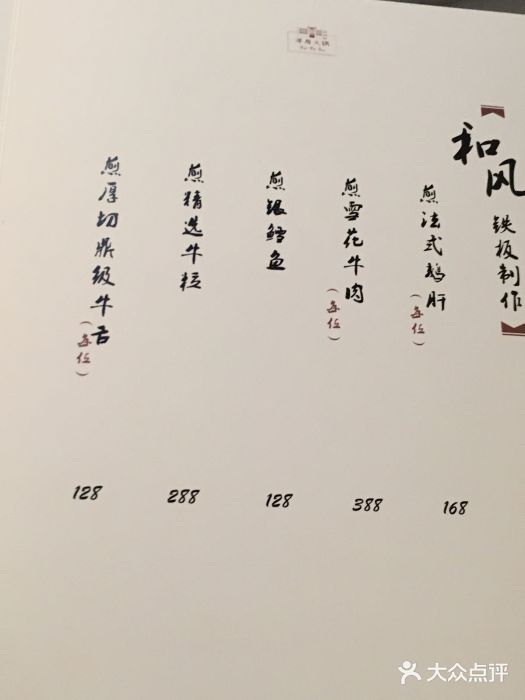 和风
铁板制作
煎法式鹅肝（每位）
168
煎雪花牛肉（每位）
388
煎银鳕鱼
128
煎精选牛粒
288
煎厚切鼎级牛舌（每位）
128
大众点评